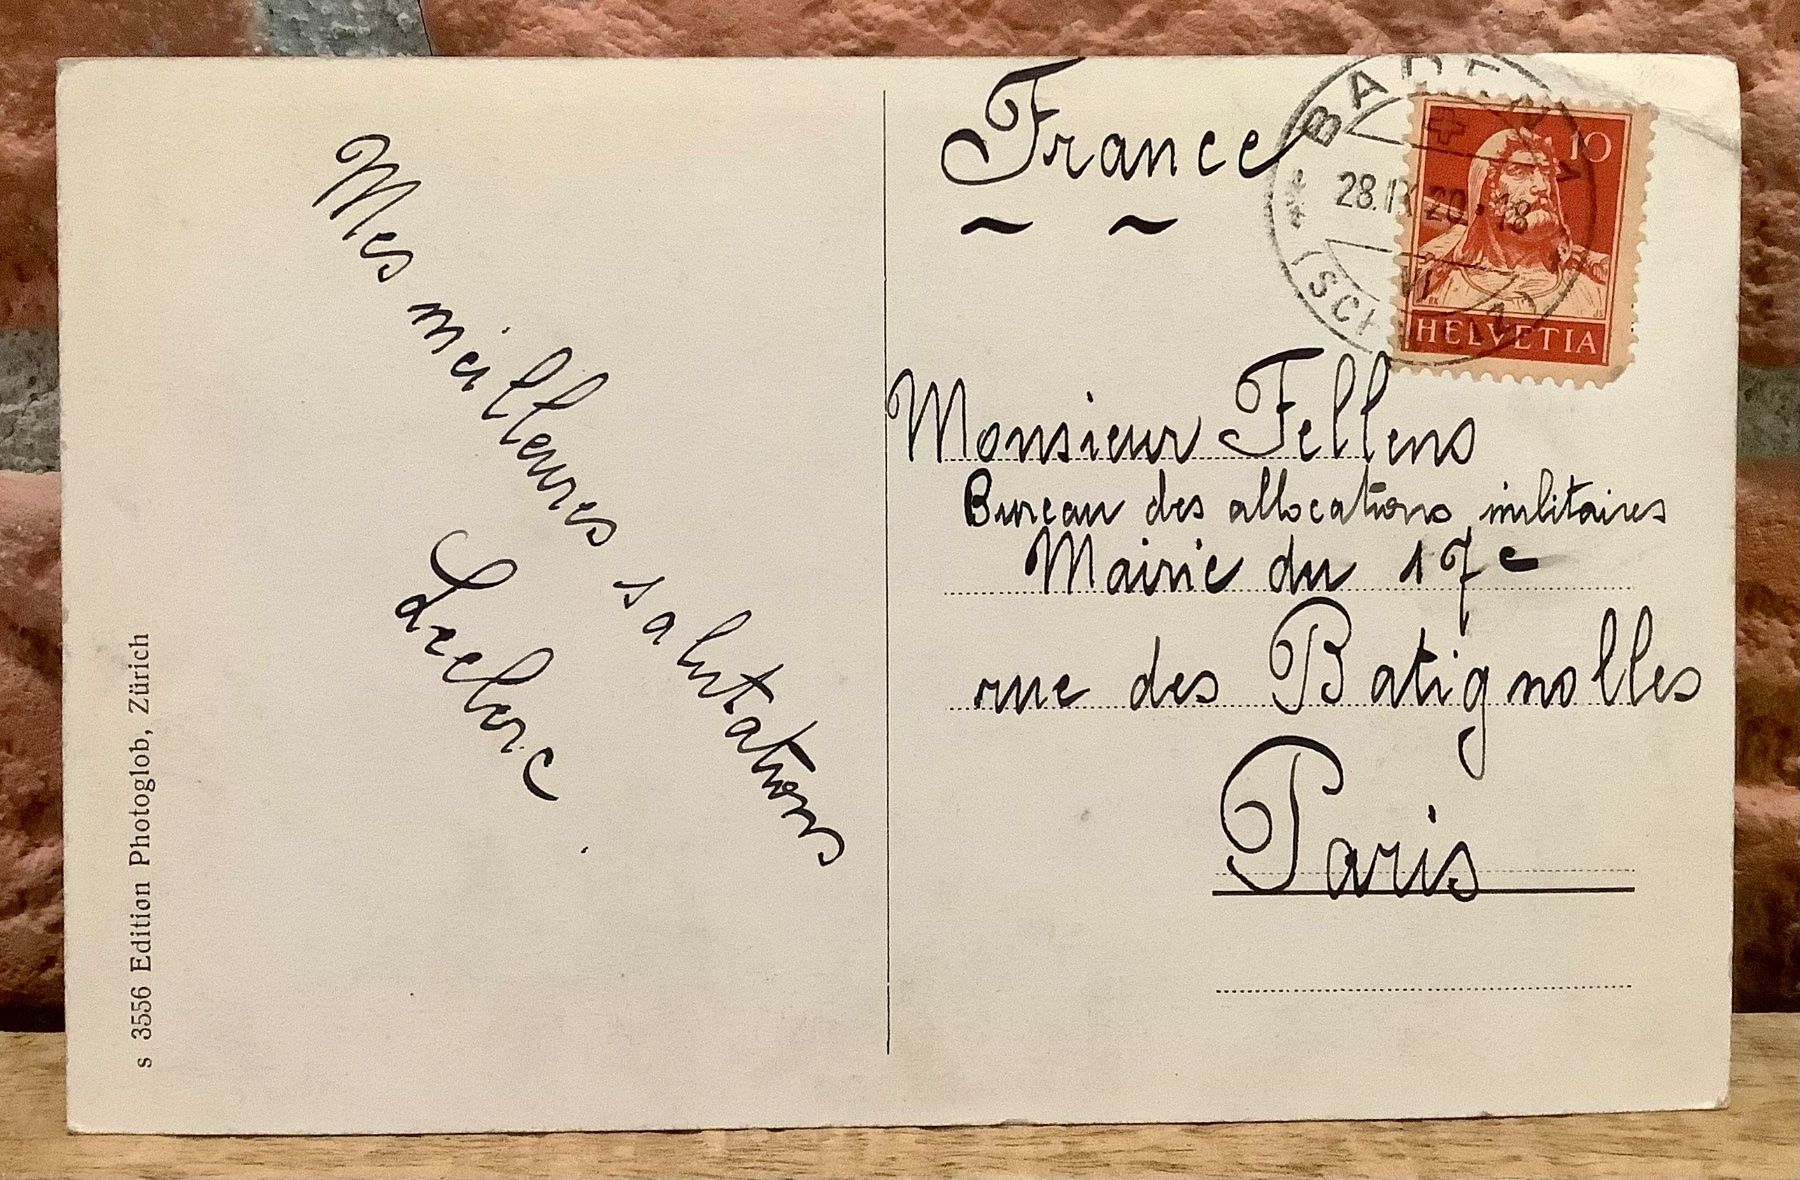 Mes meilleures salutations
Leclerc
s 3556 Edition Photoglob, Zürich
France
BADEN
28.IX.20.-18
VI
(SCHWEIZ)
10
HELVETIA
Monsieur Fellens
Bureau des allocations militaires
Mairie du 17e
rue des Batignolles
Paris